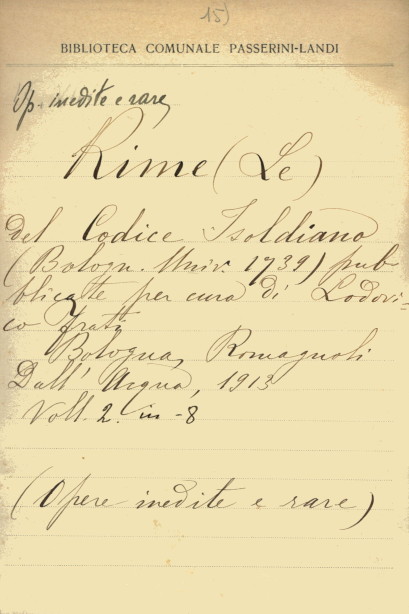 15)
BIBLIOTECA COMUNALE PASSERINI-LANDI
Op. inedite e rare
Rime (Le)
del Codice Isoldiano
(Bologn. Univ. 1739) pub-
blicate per cura di Lodovi-
co Frati
Bologna, Romagnoli
Dall' Acqua, 1913
Voll. 2. in-8
(Opere inedite e rare)